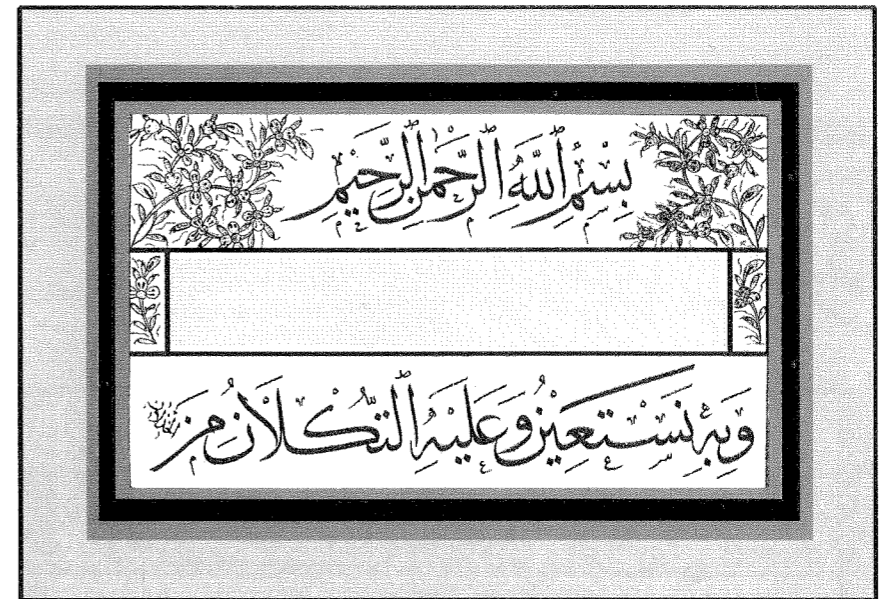 بِسْمِ ٱللَّهِ ٱلرَّحْمَنِ ٱلرَّحِيمِ
وَبِهِ نَسْتَعِينُ وَعَلَيْهِ ٱلتُّكْلَانُ